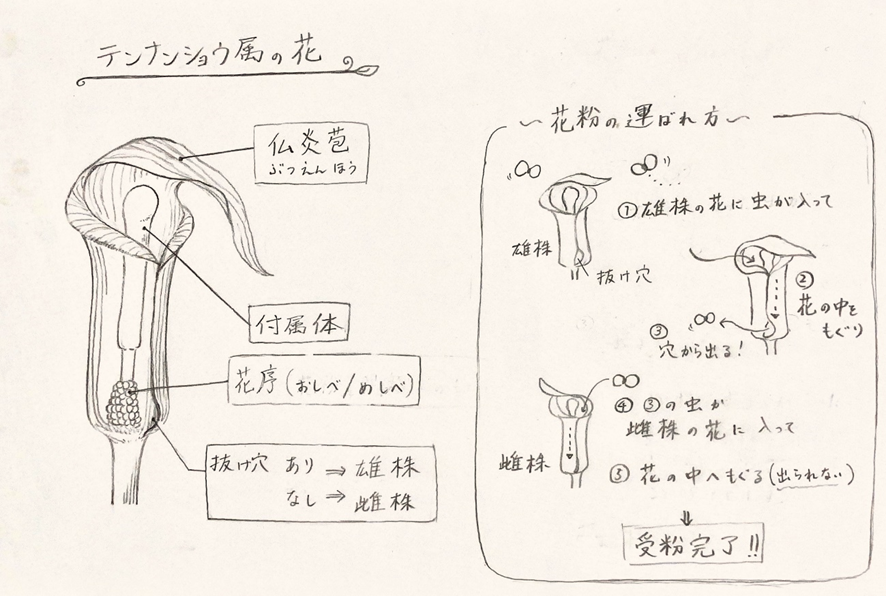 テンナンショウ属の花
仏炎苞
ぶつえんほう
付属体
花序(おしべ/めしべ)
抜け穴 あり ⇒ 雄株
なし ⇒ 雌株
〜花粉の運ばれ方〜
①雄株の花に虫が入って
雄株
抜け穴
②
花の中を
もぐり
③
穴から出る!
④ ③の虫が
雌株の花に入って
雌株
⑤ 花の中へもぐる(出られない)
⇓
受粉完了!!